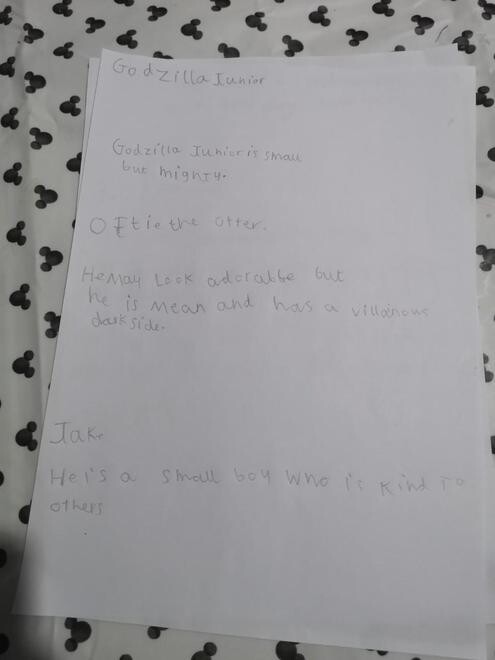 Godzilla Junior
Godzilla Junior is small
but mighty.
Oftie the otter.
He May Look adorable but
he is Mean and has a villainous
dark side.
Jake
He is a small boy who is kind to
others